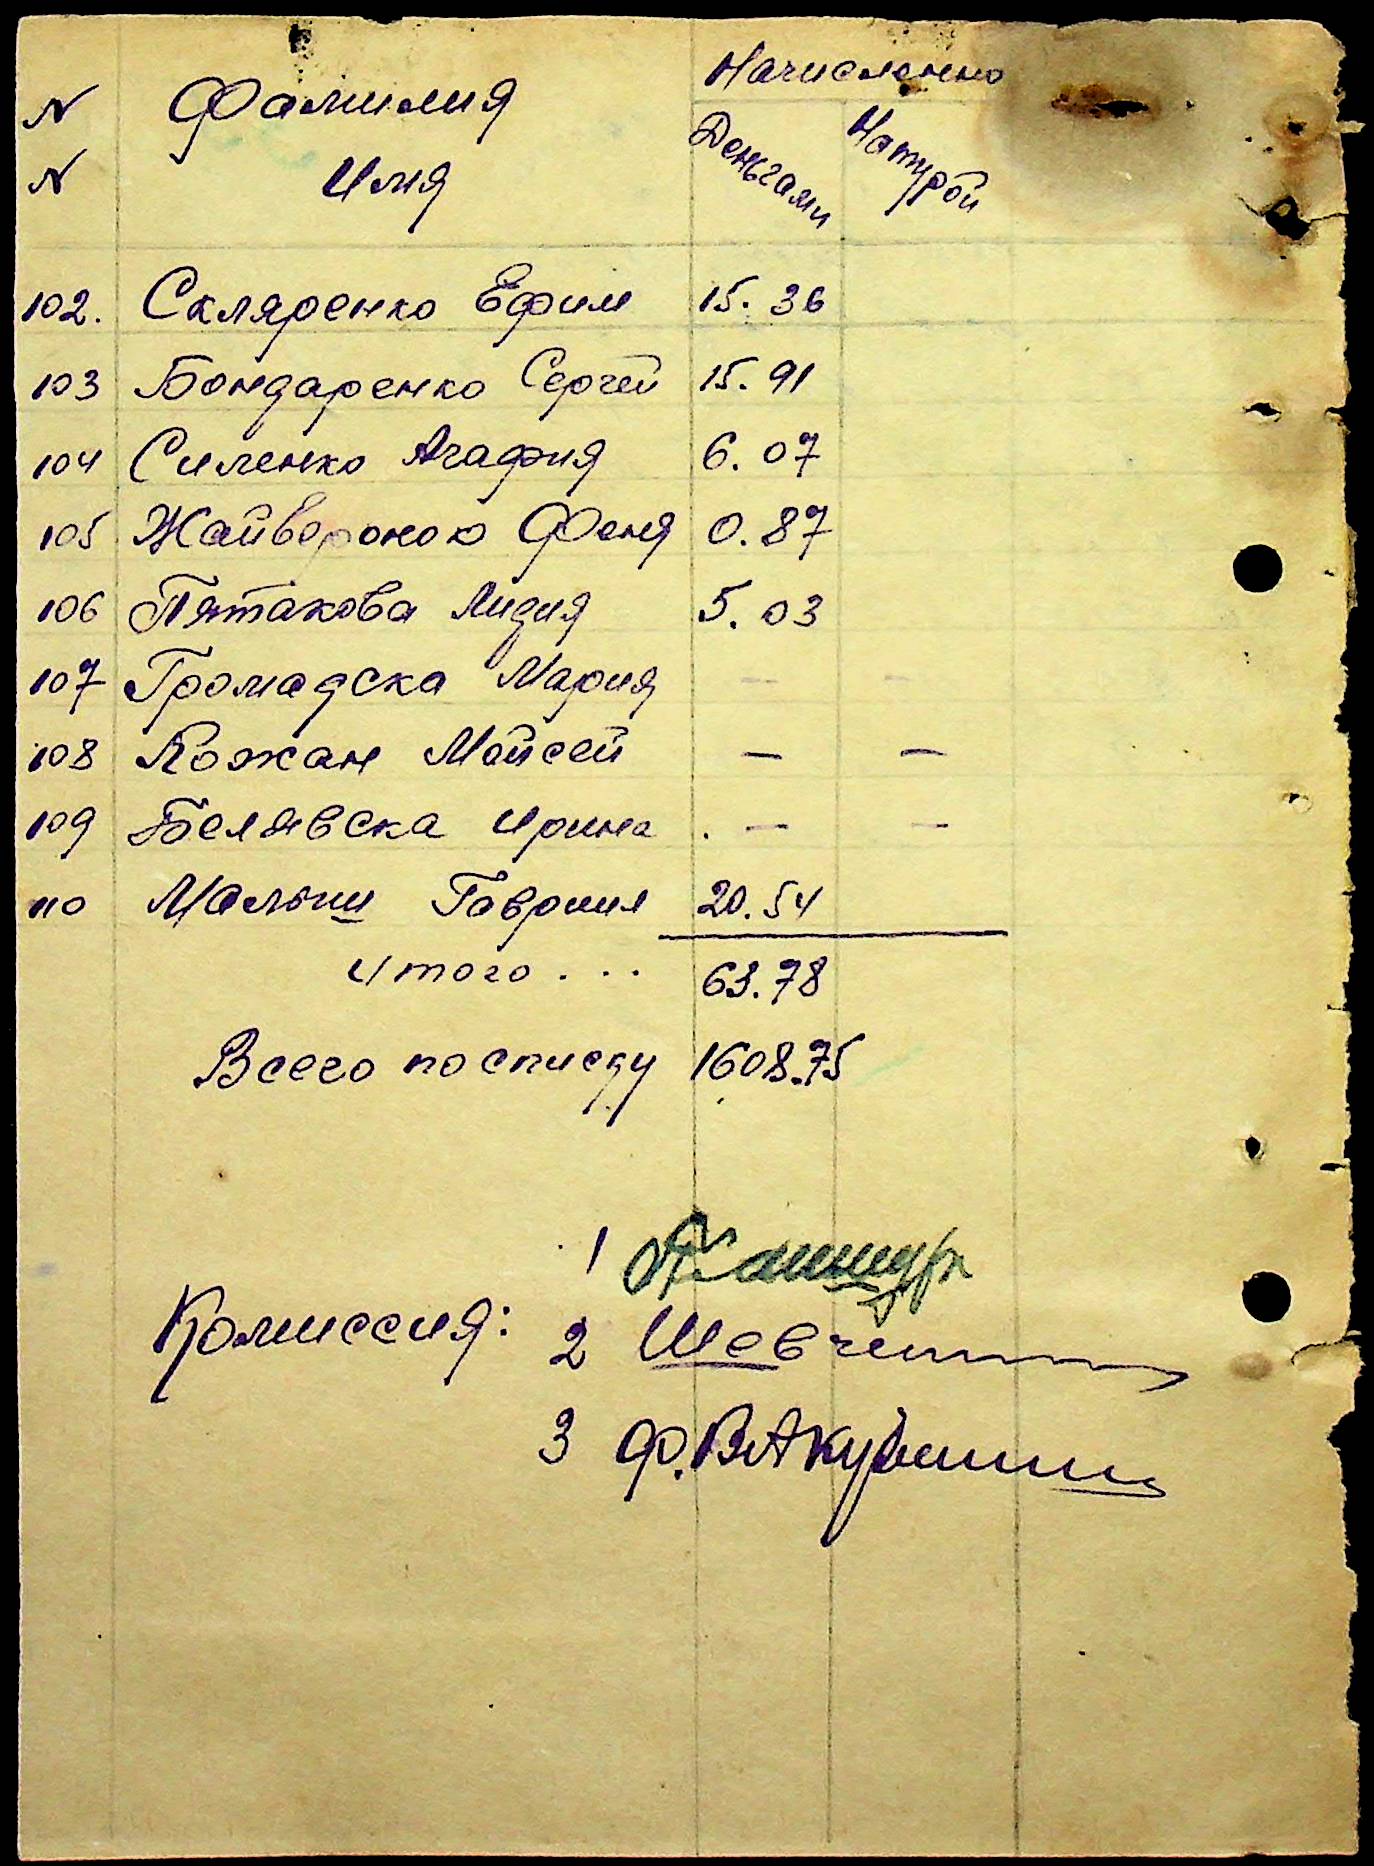 Начисленно
N Фамилия Деньгами Натурой
N Имя
102. Скляренко Ефим 15. 36
103 Бондаренко Сергей 15. 91
104 Силенко Агафия 6. 07
105 Жайвороною Феня 0. 87
106 Пятакова Лидия 5. 03
107 Громадска Мария — —
108 Кожан Мойсей — —
109 Белявска Ирина . — —
110 Малыш Гавриил 20. 54
Итого . . . 63. 78
Всего по списку 1608.75
1
Комиссия:
2 Шевчен
3 Ф.